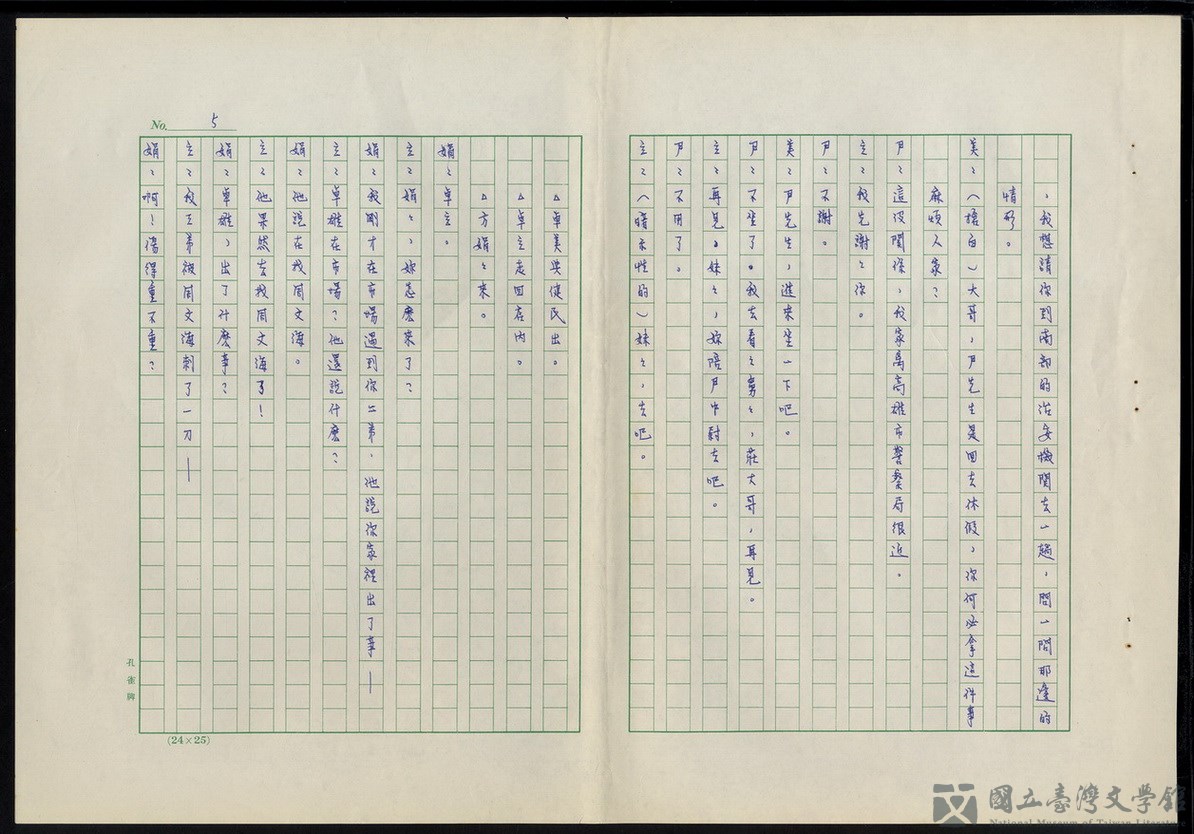 ，我想請你到南部的治安機關去一趟，問一問那邊的
情形。
美：（語白）大哥，尹先生是回去休假，你何必拿這件事
麻煩人家？
尹：這沒關係，我家離高雄市警察局很近。
立：我先謝：你。
尹：不謝。
美：尹先生，進來坐一下吧。
尹：不坐了。我去看：舅：，莊大哥，再見。
立：再見。妹：，妳陪尹中尉去吧。
尹：不用了。
立：（暗示性的）妹：，去吧。
△卓美與健民出。
△卓立走回店內。
△方娟：來。
娟：卓立。
立：娟：，妳怎麼來了？
娟：我剛才在市場遇到你二弟，他說你家裡出了事—
立：卓雄在市場？他還說什麼？
娟：他說在找周文海。
立：他果然去找周文海了！
娟：卓雄，出了什麼事？
立：我三弟被周文海刺了一刀—
娟：啊！傷得重不重？
No. 5
孔雀牌
(24×25)
國立臺灣文學館
National Museum of Taiwan Literature